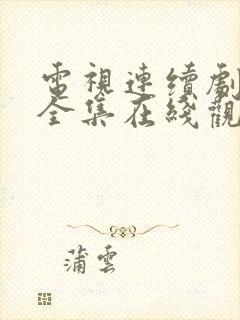 電視連續劇
全集在綫觀
蒲雲